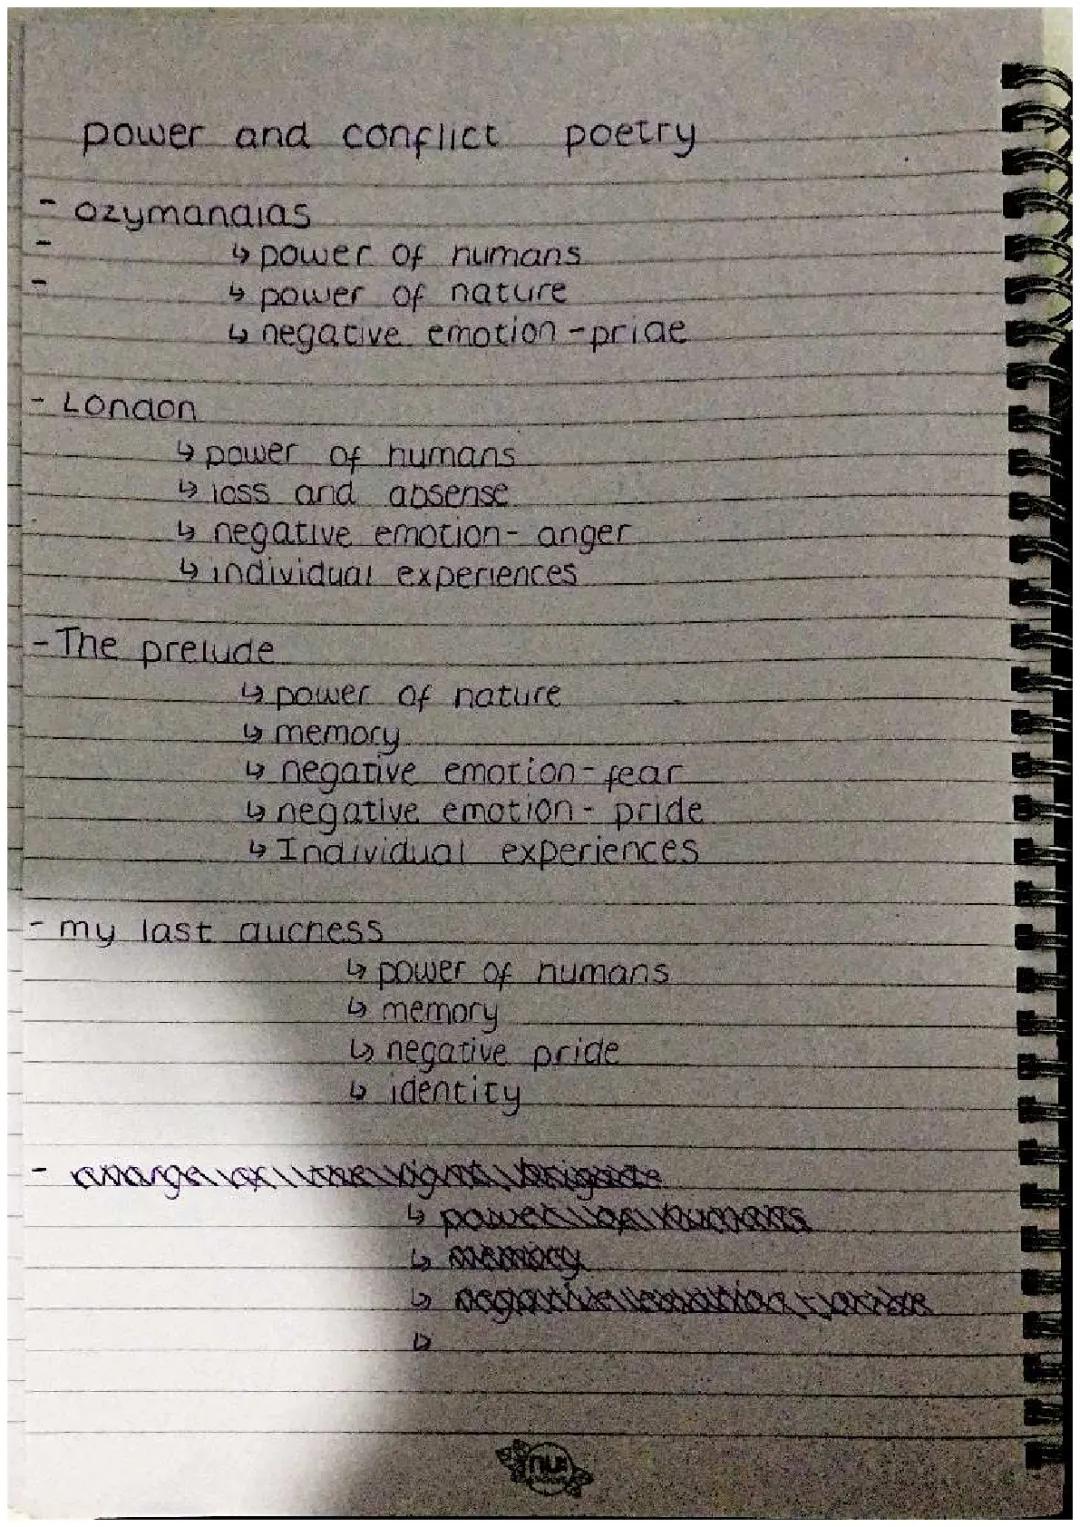 power and conflict poetry
- ozymandias
-
↳ power of humans
-
↳ power of nature
↳ negative emotion - pride
- London
↳ power of humans
↳ loss and absense
↳ negative emotion - anger
↳ individual experiences
- The prelude
↳ power of nature
↳ memory
↳ negative emotion - fear
↳ negative emotion - pride
↳ Individual experiences
- my last duchess
↳ power of humans
↳ memory
↳ negative pride
↳ identity
- charge of the light brigade
↳ power of humans
↳ memory
↳ negative emotion - pride
↳
nu: